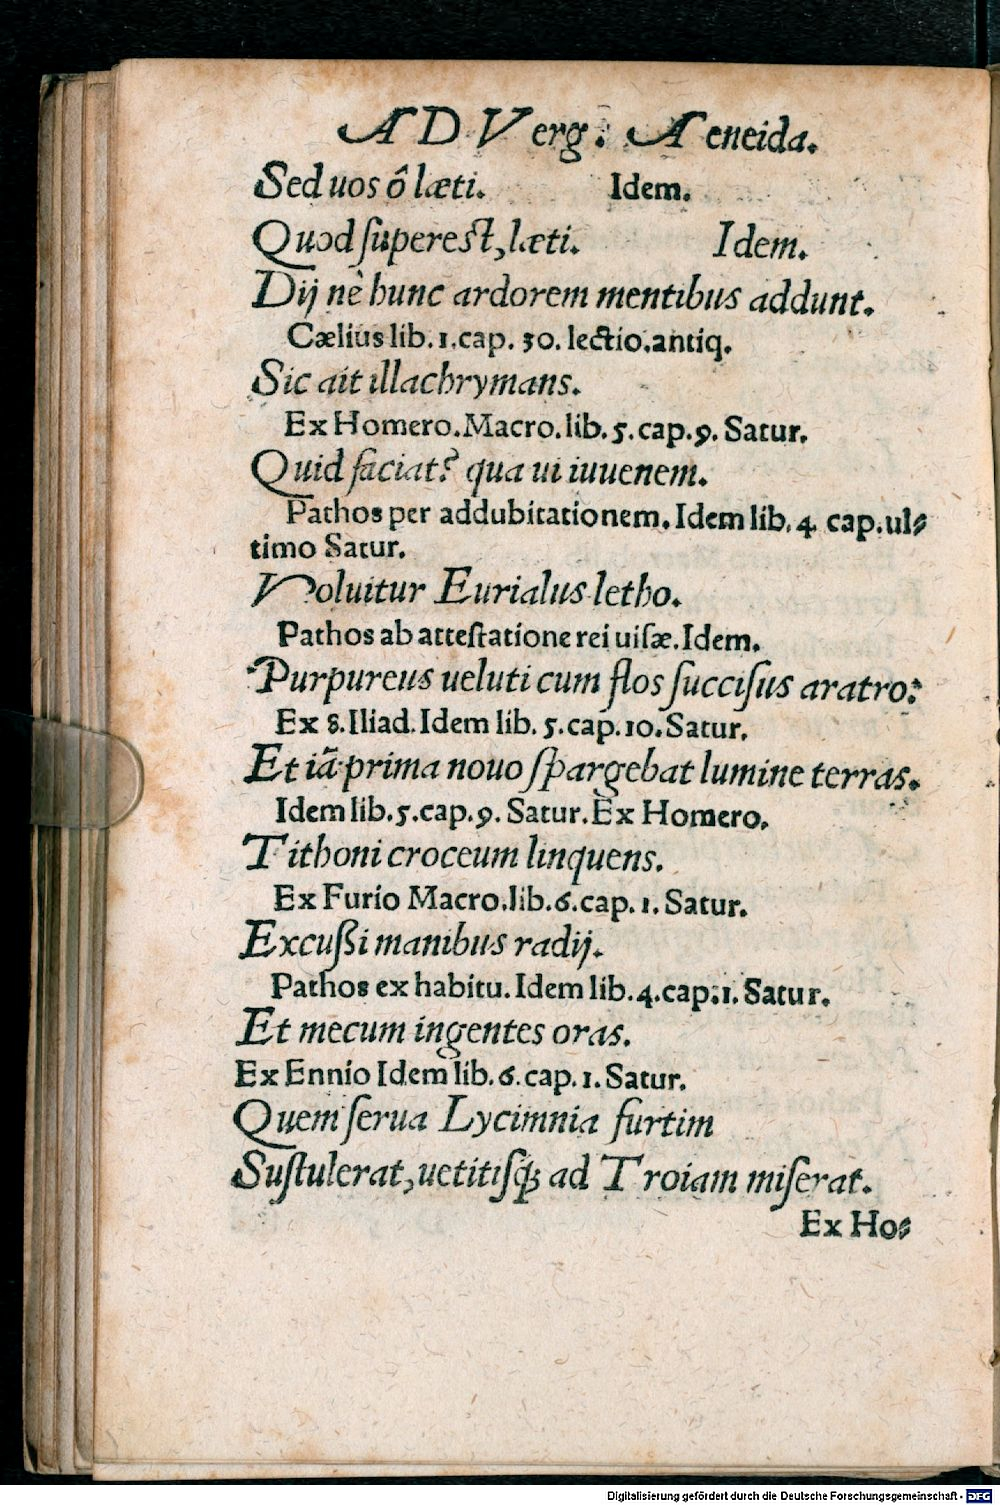 AD Verg: Aeneida.
Sed uos ô læti. Idem.
Quod superest, læti. Idem.
Dij nè hunc ardorem mentibus addunt.
Cælius lib. 1. cap. 30. lectio. antiq.
Sic ait illachrymans.
Ex Homero. Macro. lib. 5. cap. 9. Satur.
Quid faciat? qua ui iuuenem.
Pathos per addubitationem. Idem lib. 4 cap. ul⸗
timo Satur.
Voluitur Eurialus letho.
Pathos ab attestatione rei uisæ. Idem.
Purpureus ueluti cum flos succisus aratro:
Ex 8. Iliad. Idem lib. 5. cap. 10. Satur.
Et iã prima nouo spargebat lumine terras.
Idem lib. 5. cap. 9. Satur. Ex Homero.
Tithoni croceum linquens.
Ex Furio Macro. lib. 6. cap. 1. Satur.
Excußi manibus radij.
Pathos ex habitu. Idem lib. 4. cap: 1. Satur.
Et mecum ingentes oras.
Ex Ennio Idem lib. 6. cap. 1. Satur.
Quem serua Lycimnia furtim
Sustulerat, uetitisq; ad Troiam miserat.
Ex Ho⸗
Digitalisierung gefördert durch die Deutsche Forschungsgemeinschaft - DFG